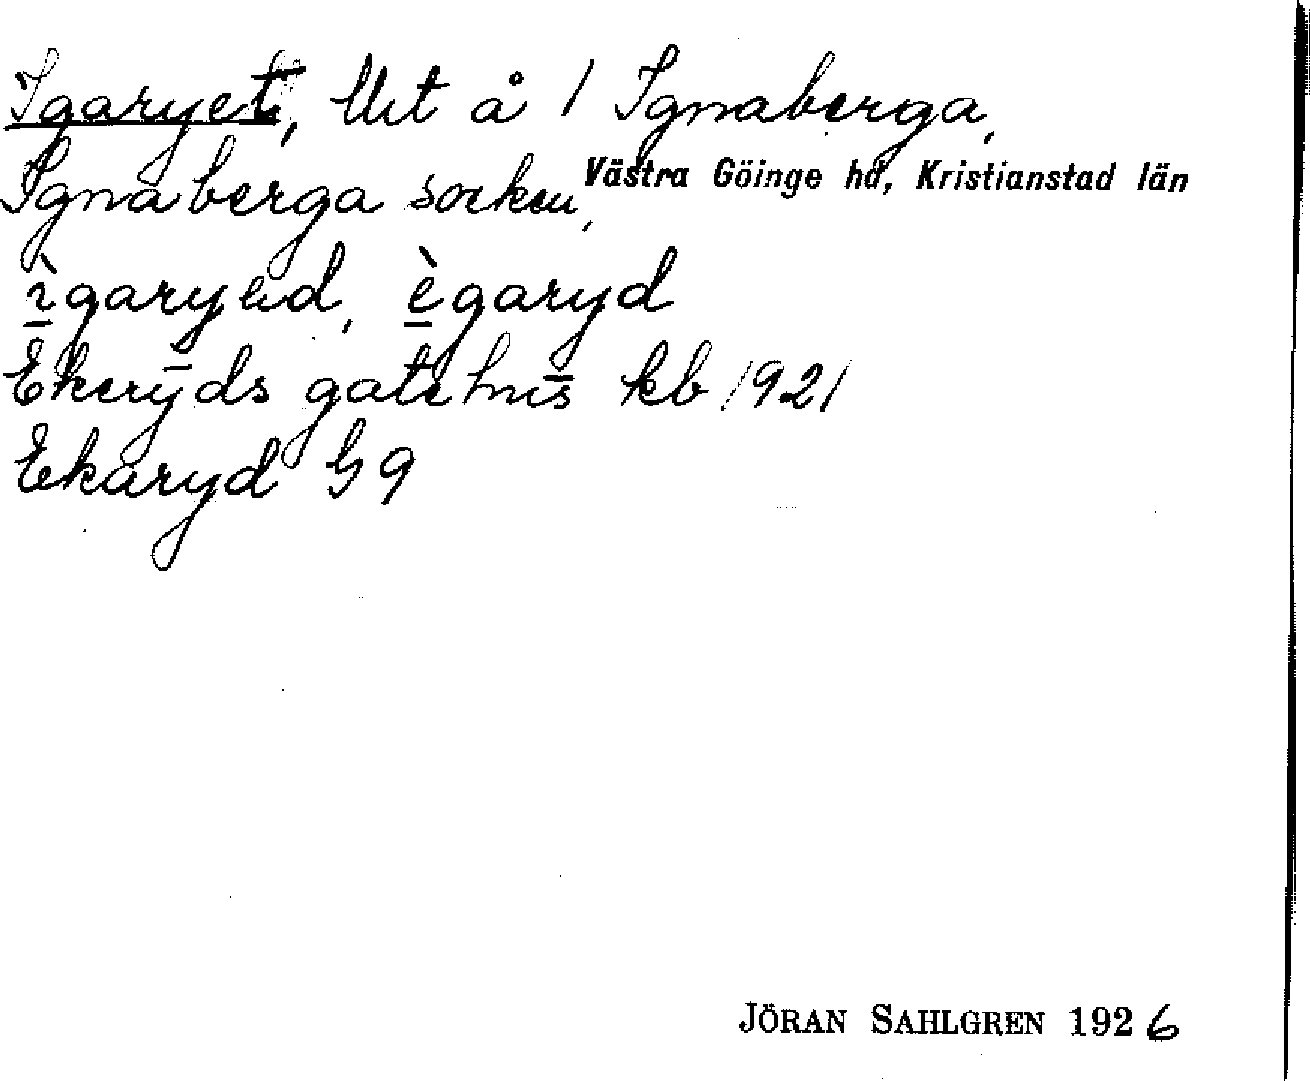 Igaryet, Ut å 1 Ignaberga,
Ignaberga socken, Västra Göinge hd, Kristianstad län
ìgaryəd, ègaryd
Ekeryds gatehus kb 1921
Ekaryd G 9
JÖRAN SAHLGREN 1926